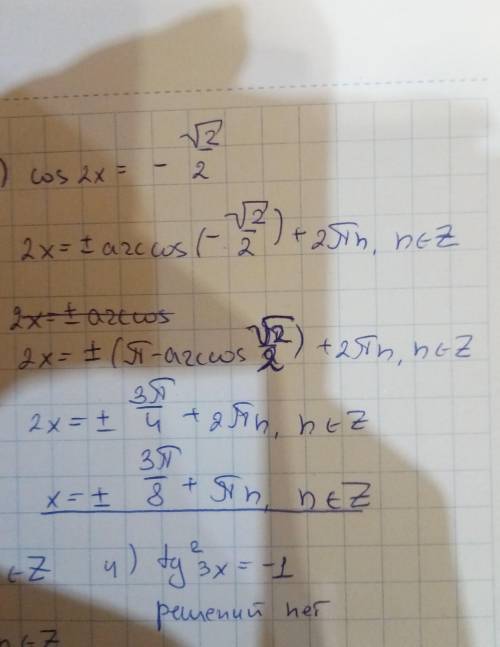 ) cos 2x = - √2/2
2x = ± arccos(-√2/2) + 2πn, n∈Z
2x = ± arccos
2x = ± (π - arccos √2/2) + 2πn, n∈Z
2x = ± 3π/4 + 2πn, n∈Z
x = ± 3π/8 + πn, n∈Z
∈Z
4) tg² 3x = -1
решений нет
n∈Z